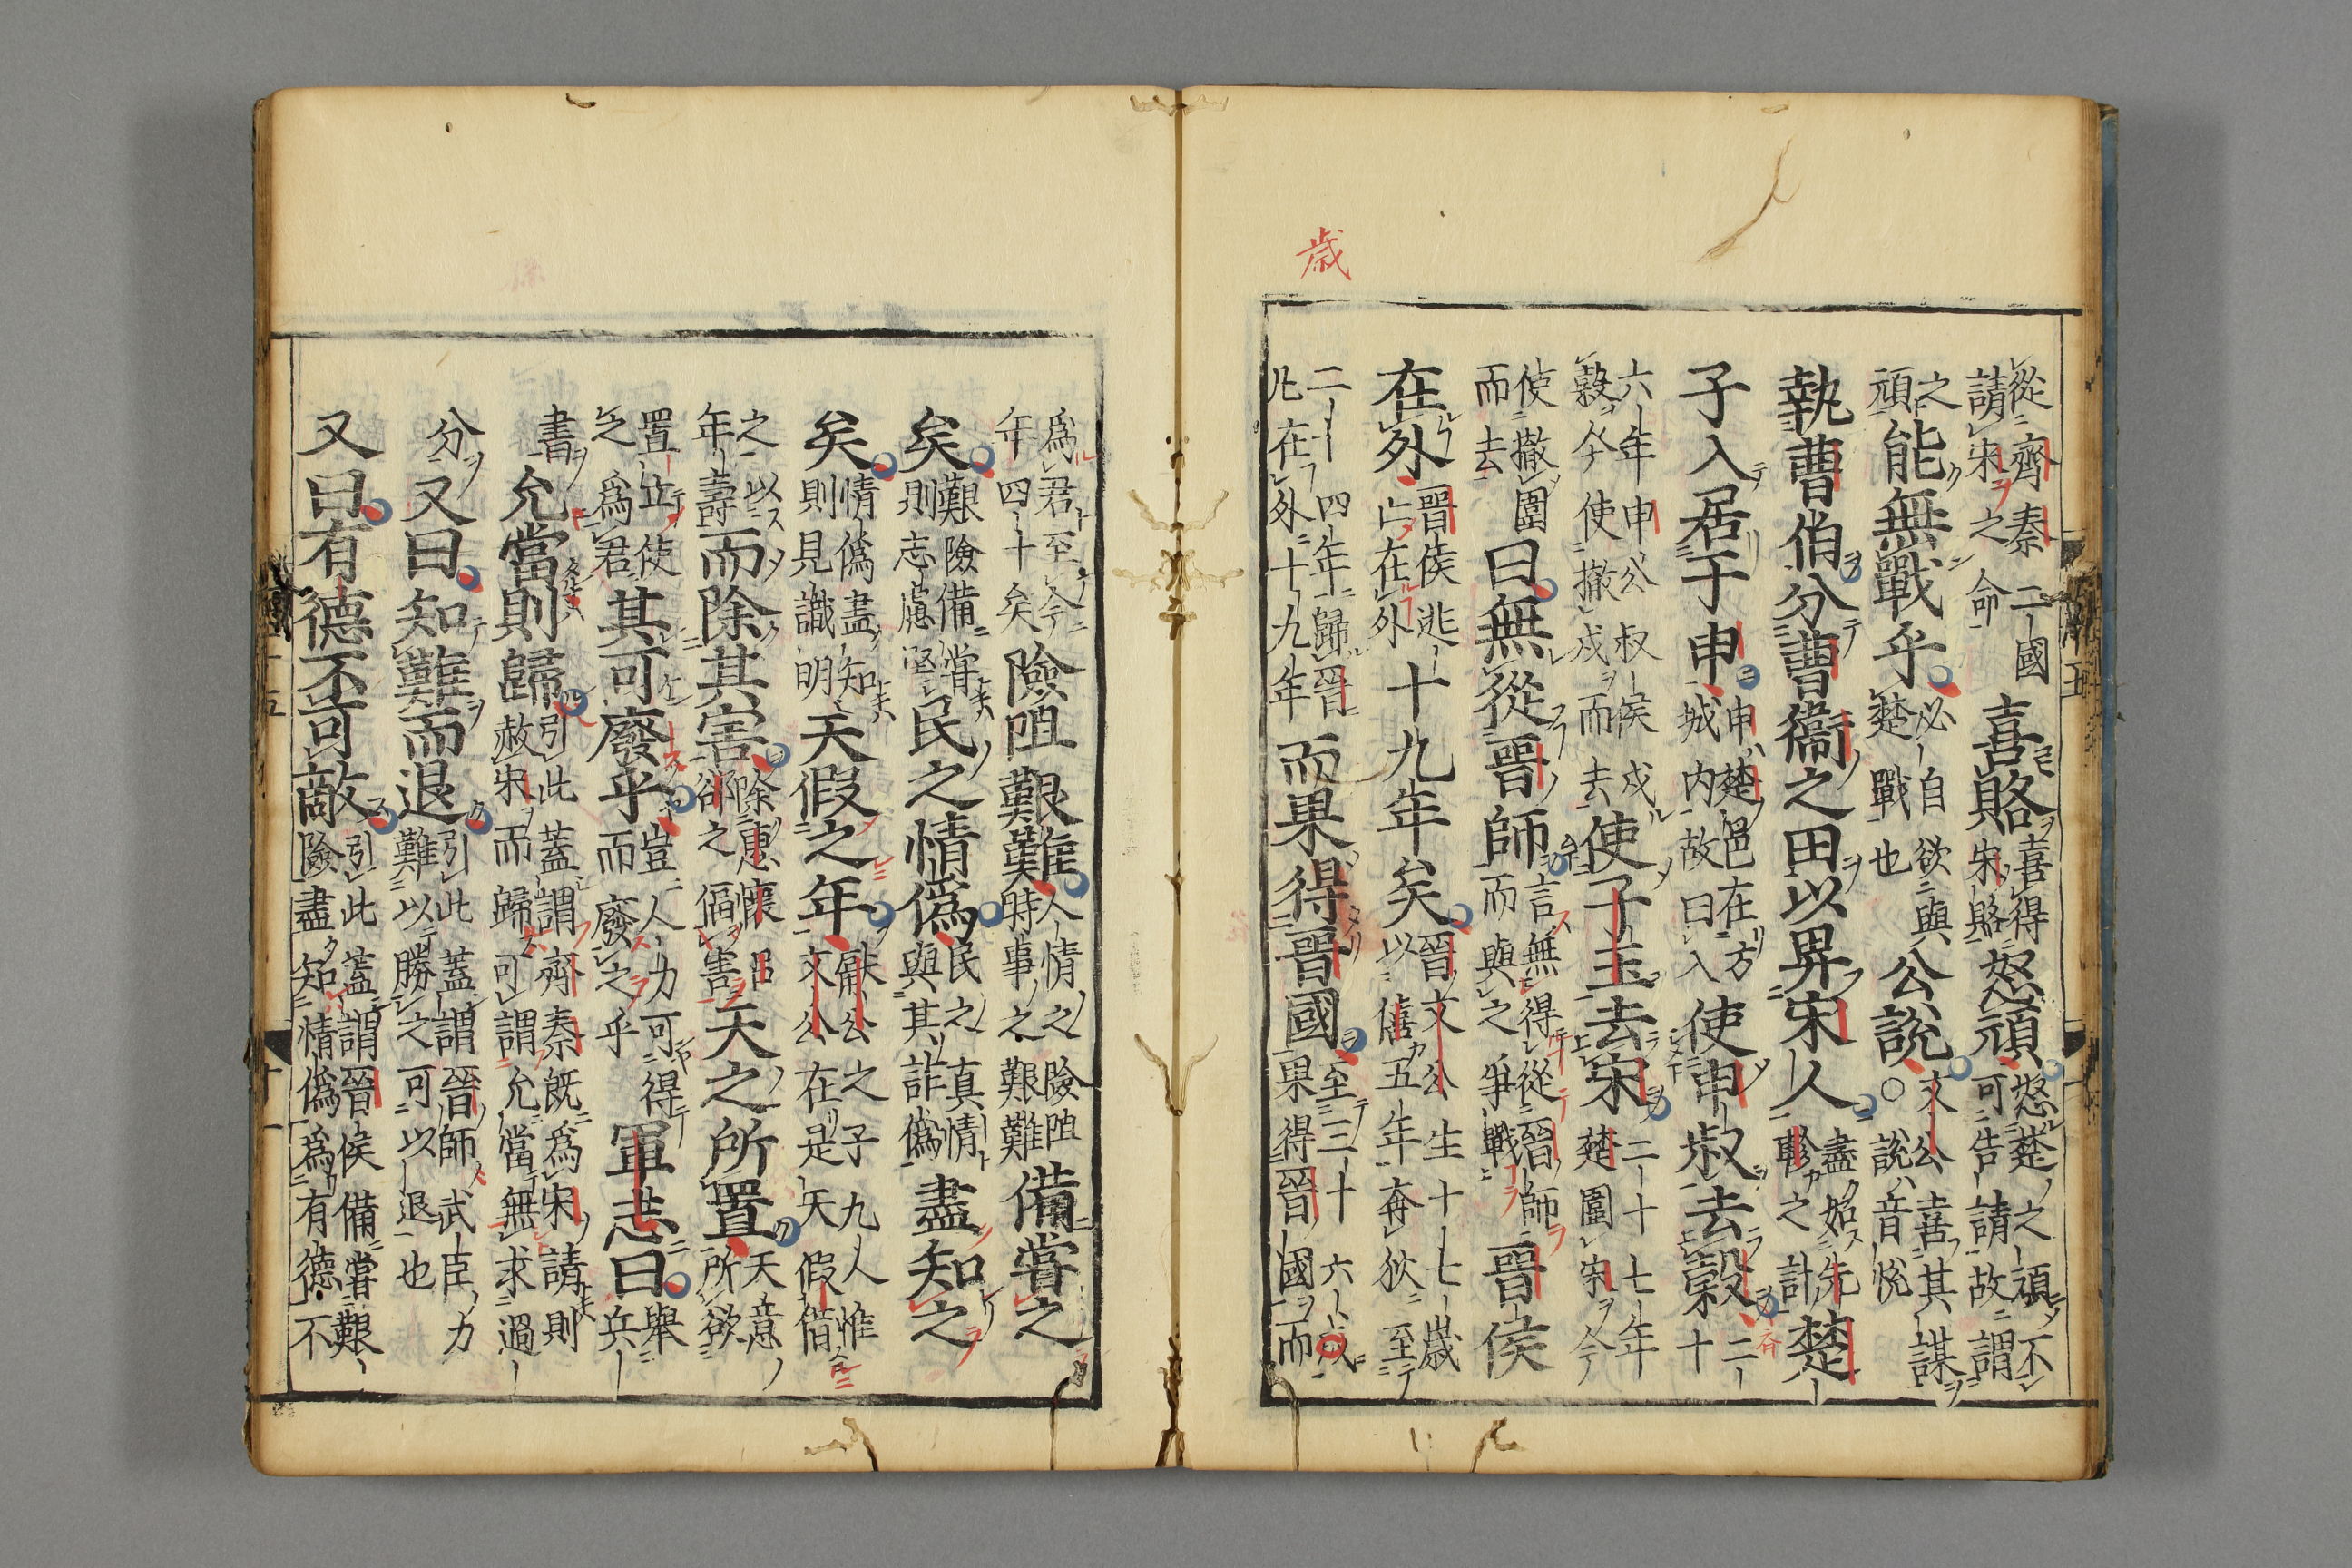 歲
從齊秦二國
請宋之命
喜賂
喜得
宋賂
怒頑
怒楚之頑不
可告請故謂
之
頑
能無戰乎
必自欲與
楚戰也
公說
文公喜其謀
○說音悅
執曹伯分曹衞之田以畀宋人
盡始先
軫之計
楚
子入居于申
申楚邑在方
城内故曰入
使申叔去穀
二十
六年申公叔侯戍
穀今使撤戍而去
使子玉去宋
二十七年
楚圍宋今
使撤圍
而去
曰無從晉師
言無得從晉師
而與之爭戰
晉侯
在外
晉侯逃
亡在外
十九年矣
晉文公生十七歲
以僖五年奔狄至
二十四年歸晉
凡在外十九年
而果得晉國
至三十六歲
果得晉國而
爲君至今
年四十矣
險阻艱難
人情之險阻
時事之艱難
備嘗之
矣
艱險備嘗
則志慮堅
民之情僞
民之真情
與其詐僞
盡知之
矣
情僞盡知
則見識明
天假之年
獻公之子九人惟
文公在是天假借
之以
年壽
而除其害
除惠懷呂
郤之偪害
天之所置
天意
所欲
置止使
之爲君
其可廢乎
豈人力可得
而廢之乎
軍志曰
舉
兵
書
允當則歸
引此蓋謂齊秦既爲宋請則
赦宋而歸可謂允當無求過
分
又曰知難而退
引此蓋謂晉師武臣力
難以勝之可以退也
又曰有德不可敵
引此蓋謂晉侯備嘗艱
險盡知情僞爲有德不